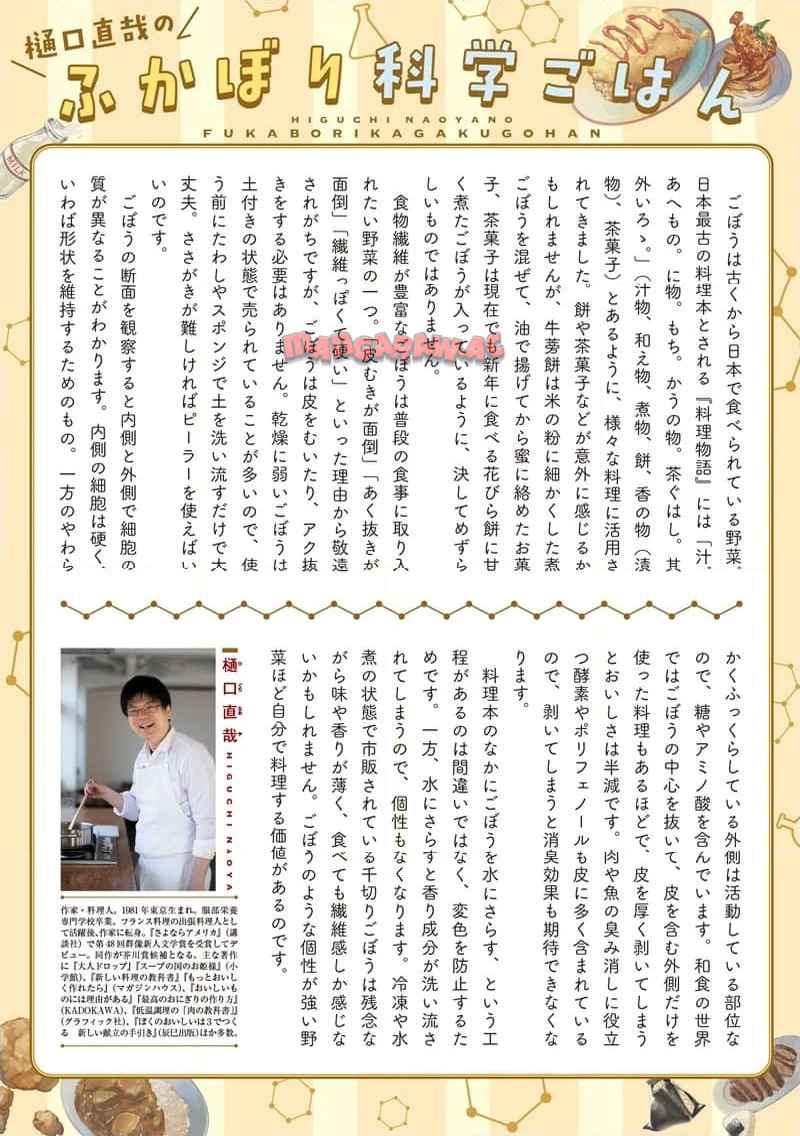 樋口直哉の
ふかぼり科学ごはん
HIGUCHI NAOYANO
FUKABORIKAGAKUGOHAN
MILK
ごぼうは古くから日本で食べられている野菜。
日本最古の料理本とされる『料理物語』には「汁。
あへもの。に物。もち。かうの物。茶ぐはし。其
外いろゝ。」（汁物、和え物、煮物、餅、香の物（漬
物）、茶菓子）とあるように、様々な料理に活用さ
れてきました。餅や茶菓子などが意外に感じるか
もしれませんが、牛蒡餅は米の粉に細かくした煮
ごぼうを混ぜて、油で揚げてから蜜に絡めたお菓
子、茶菓子は現在でも新年に食べる花びら餅に甘
く煮たごぼうが入っているように、決してめずら
しいものではありません。
食物繊維が豊富なごぼうは普段の食事に取り入
れたい野菜の一つ。「皮むきが面倒」「あく抜きが
面倒」「繊維っぽくて硬い」といった理由から敬遠
されがちですが、ごぼうは皮をむいたり、アク抜
きをする必要はありません。乾燥に弱いごぼうは
土付きの状態で売られていることが多いので、使
う前にたわしやスポンジで土を洗い流すだけで大
丈夫。ささがきが難しければピーラーを使えばい
いのです。
ごぼうの断面を観察すると内側と外側で細胞の
質が異なることがわかります。内側の細胞は硬く、
いわば形状を維持するためのもの。一方のやわら
MANGARAW.AC
かくふっくらしている外側は活動している部位な
ので、糖やアミノ酸を含んでいます。和食の世界
ではごぼうの中心を抜いて、皮を含む外側だけを
使った料理もあるほどで、皮を厚く剥いてしまう
とおいしさは半減です。肉や魚の臭み消しに役立
つ酵素やポリフェノールも皮に多く含まれている
ので、剥いてしまうと消臭効果も期待できなくな
ります。
料理本のなかにごぼうを水にさらす、という工
程があるのは間違いではなく、変色を防止するた
めです。一方、水にさらすと香り成分が洗い流さ
れてしまうので、個性もなくなります。冷凍や水
煮の状態で市販されている千切りごぼうは残念な
がら味や香りが薄く、食べても繊維感しか感じな
いかもしれません。ごぼうのような個性が強い野
菜ほど自分で料理する価値があるのです。
樋口直哉
HIGUCHI NAOYA
作家・料理人。1981年東京生まれ。服部栄養
専門学校卒業。フランス料理の出張料理人とし
て活躍後、作家に転身。『さよならアメリカ』（講
談社）で第48回群像新人文学賞を受賞してデ
ビュー。同作が芥川賞候補となる。主な著作
に『大人ドロップ』『スープの国のお姫様』（小
学館）、『新しい料理の教科書』『もっとおいし
く作れたら』（マガジンハウス）、『おいしいも
のには理由がある』『最高のおにぎりの作り方』
（KADOKAWA）、『低温調理の「肉の教科書」』
（グラフィック社）、『ぼくのおいしいは3でつく
る　新しい献立の手引き』（辰巳出版）ほか多数。